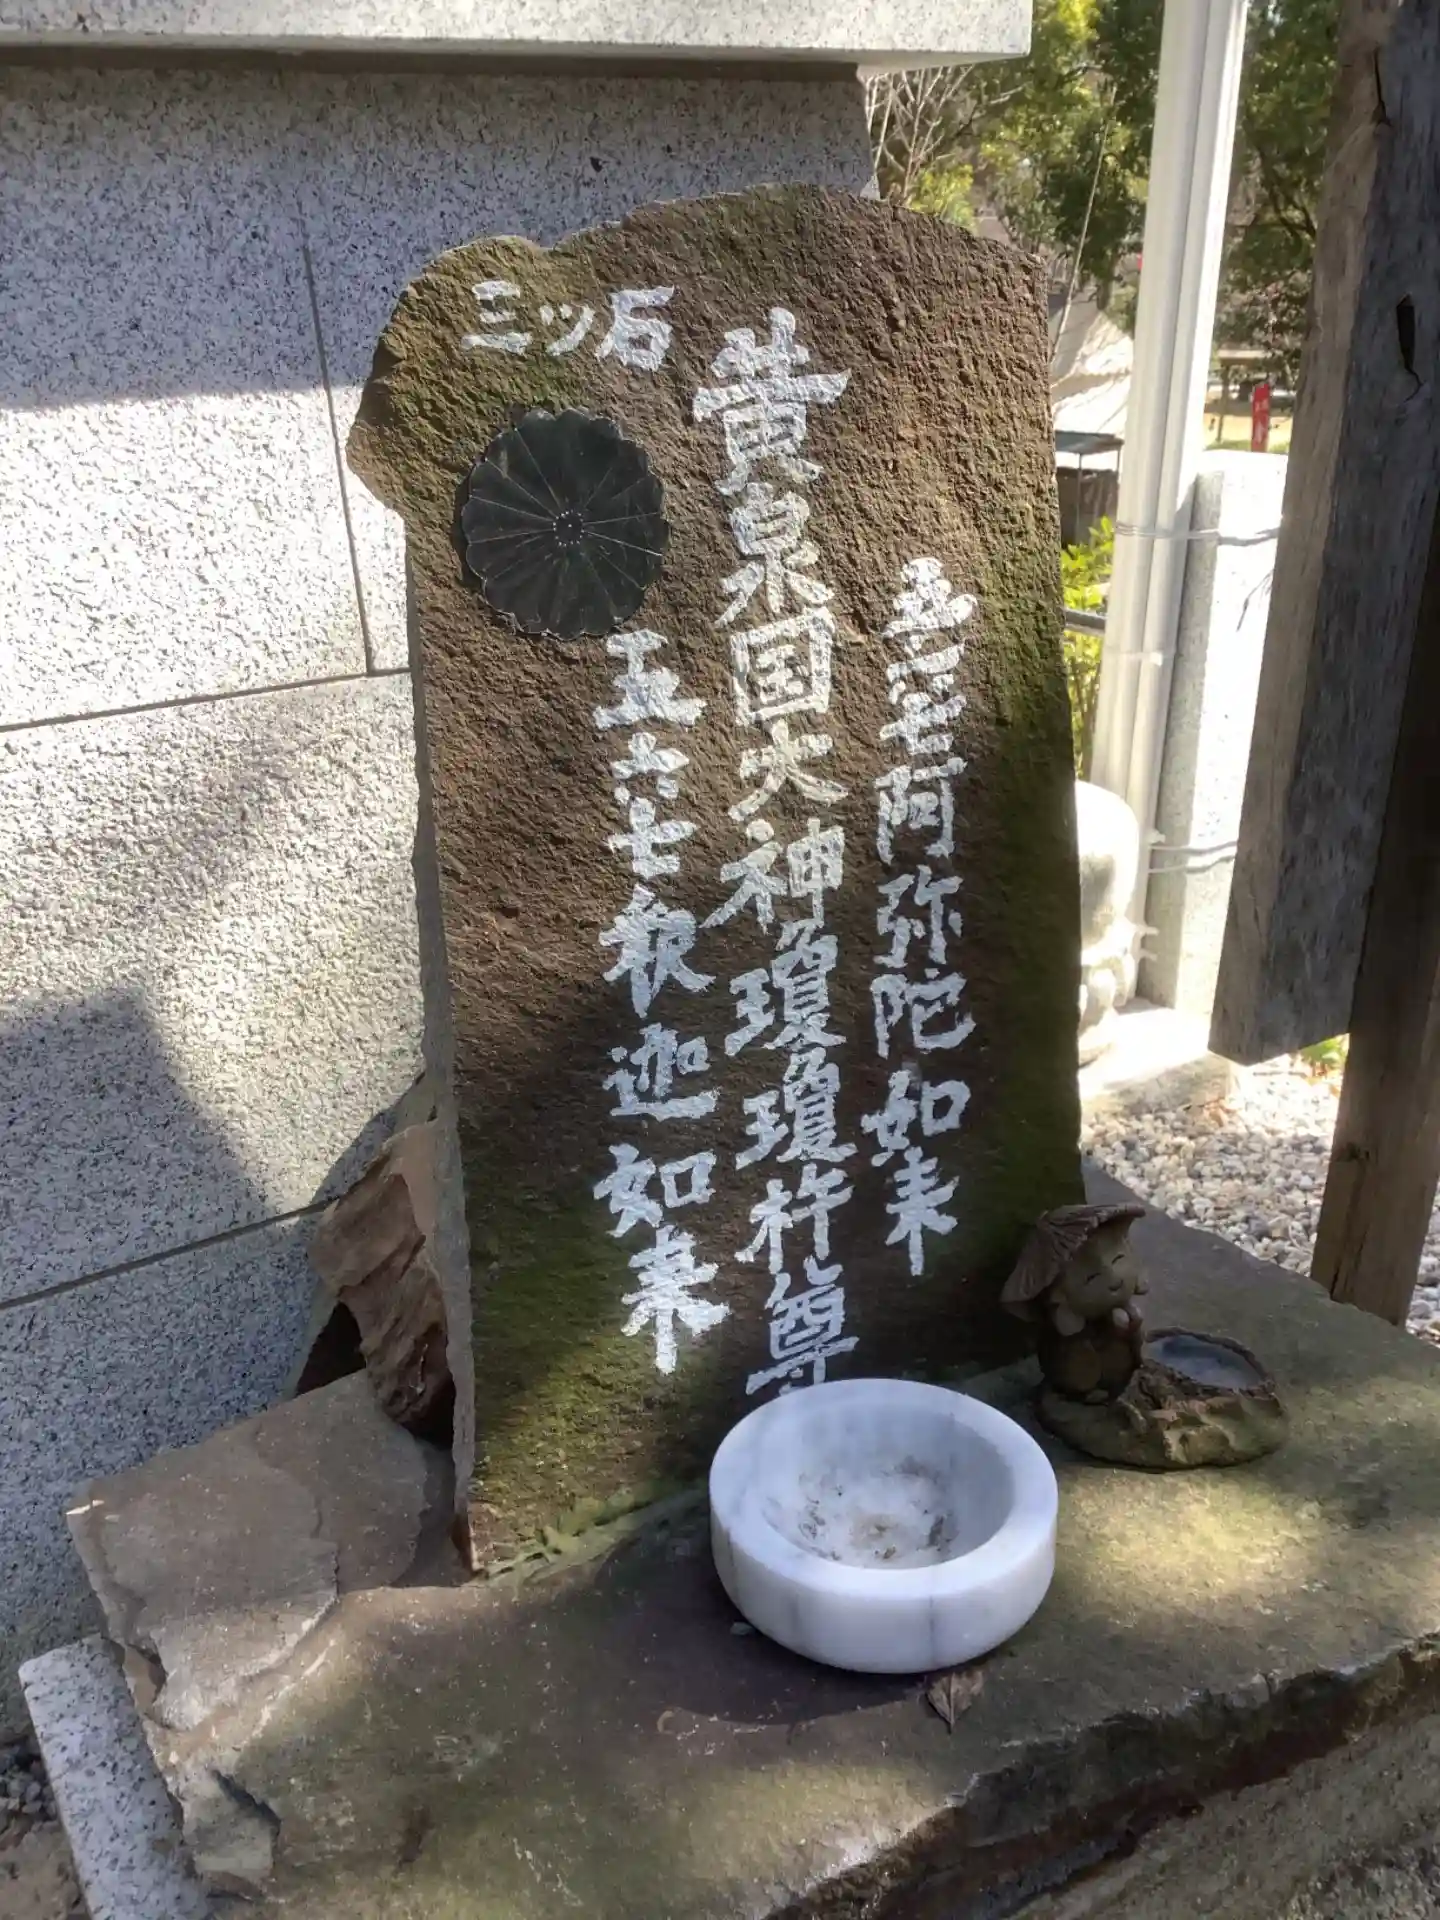 三ツ石
五六七阿弥陀如来
黄泉国火神瓊瓊杵尊
五六七釈迦如来